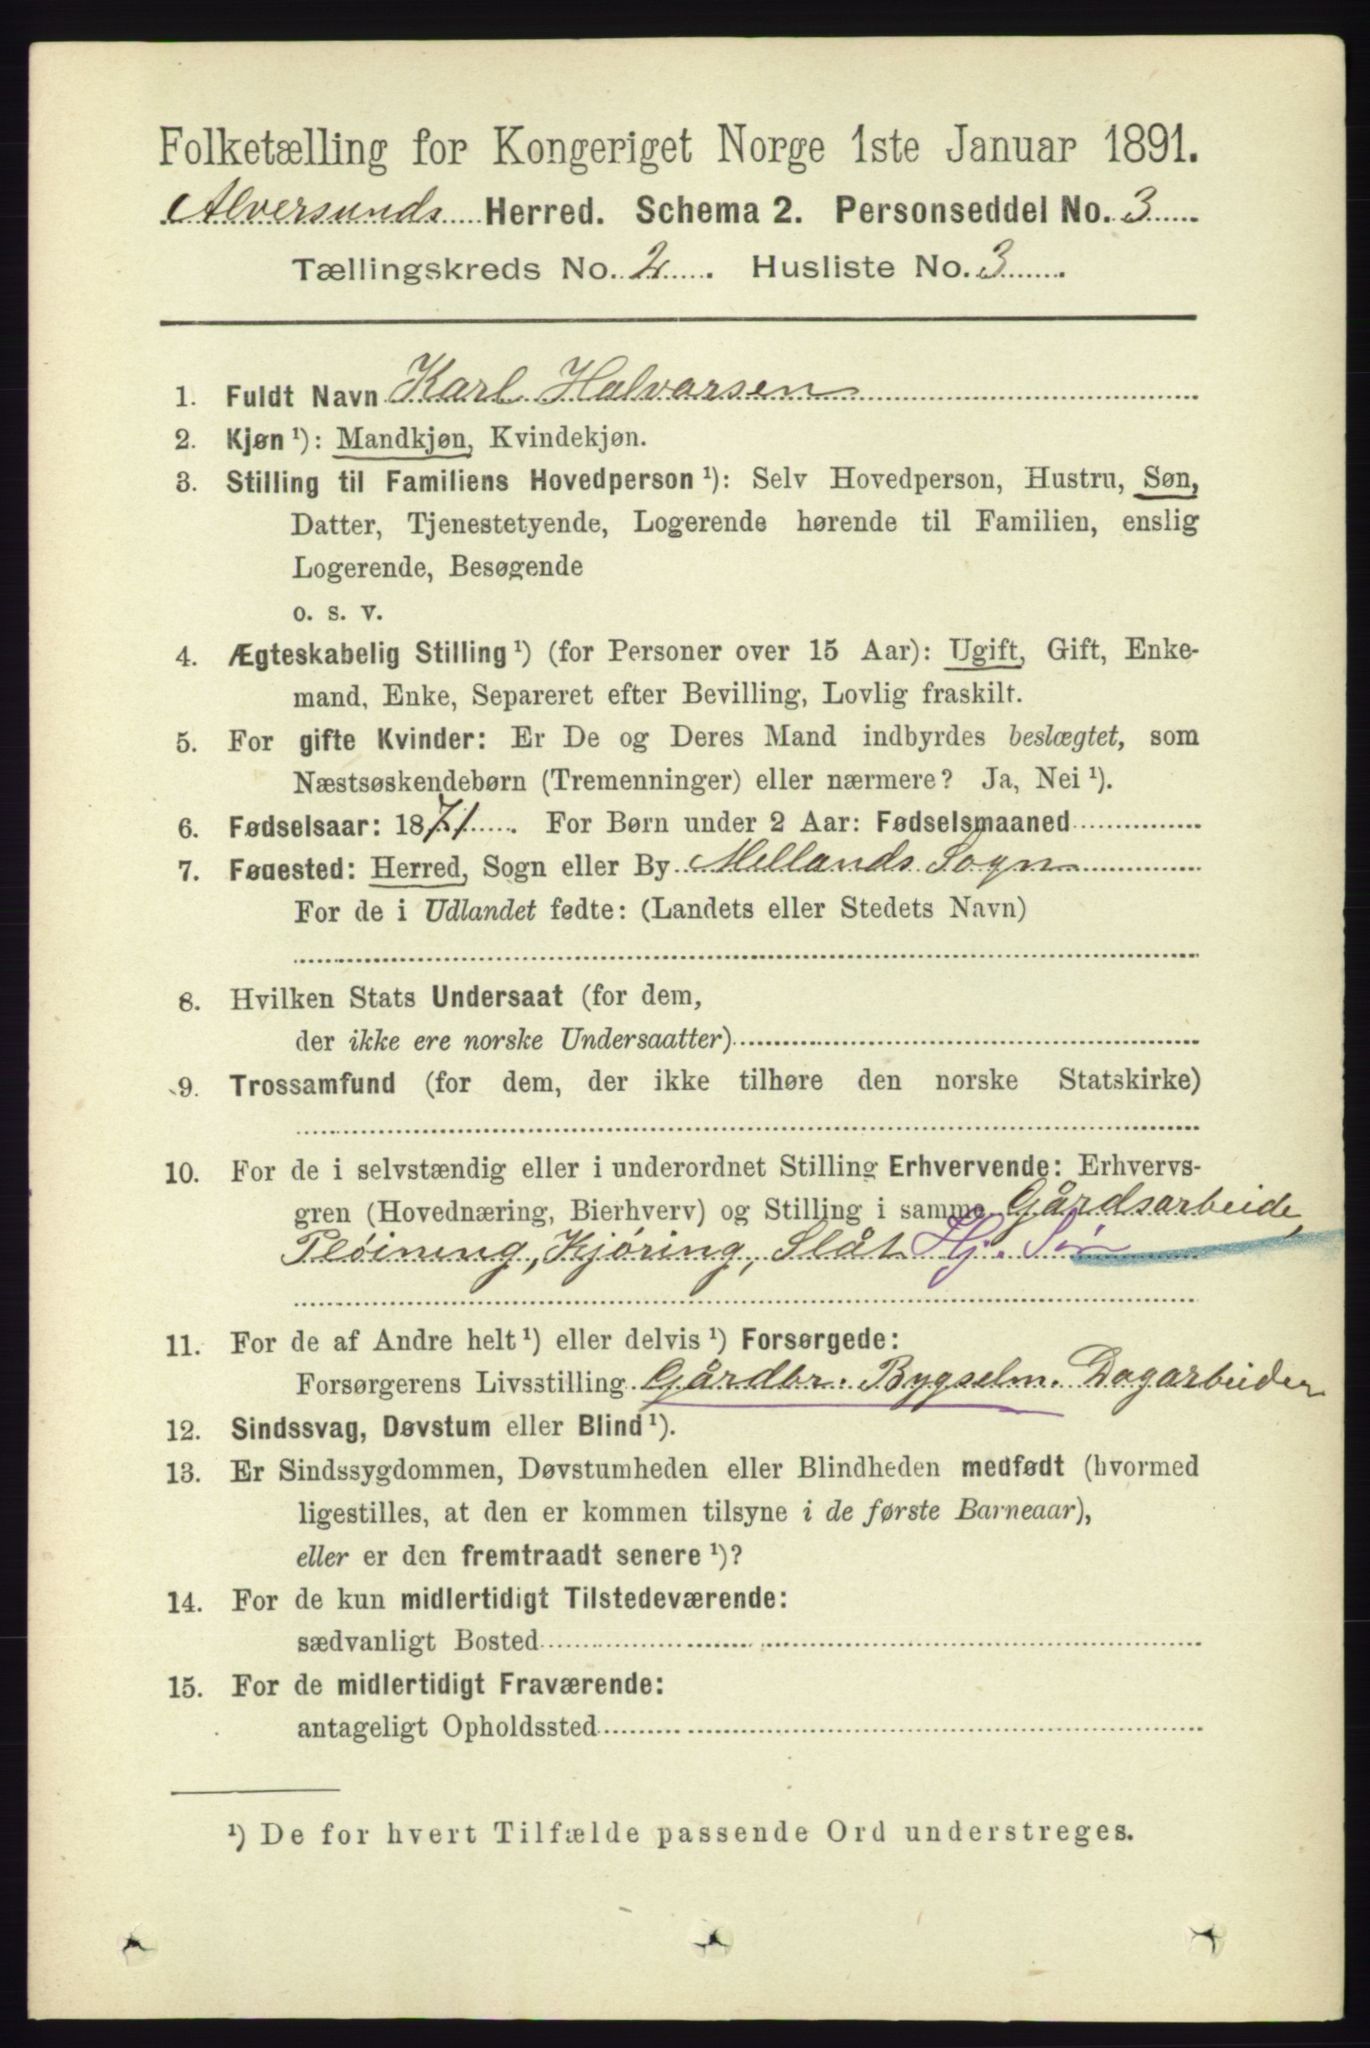 Folketælling for Kongeriget Norge 1ste Januar 1891.
Alversunds Herred. Schema 2. Personseddel No. 3
Tællingskreds No. 2. Husliste No. 3
1. Fuldt Navn Karl Halvarsen
2. Kjøn ¹): Mandkjøn, Kvindekjøn.
3. Stilling til Familiens Hovedperson ¹): Selv Hovedperson, Hustru, Søn,
Datter, Tjenestetyende, Logerende hørende til Familien, enslig
Logerende, Besøgende
o. s. v.
4. Ægteskabelig Stilling ¹) (for Personer over 15 Aar): Ugift, Gift, Enke-
mand, Enke, Separeret efter Bevilling, Lovlig fraskilt.
5. For gifte Kvinder: Er De og Deres Mand indbyrdes beslægtet, som
Næstsøskendebørn (Tremenninger) eller nærmere? Ja, Nei ¹).
6. Fødselsaar: 1871. For Børn under 2 Aar: Fødselsmaaned
7. Føɑested: Herred, Sogn eller By Mellands Sogn
For de i Udlandet fødte: (Landets eller Stedets Navn)
8. Hvilken Stats Undersaat (for dem,
der ikke ere norske Undersaatter)
9. Trossamfund (for dem, der ikke tilhøre den norske Statskirke)
10. For de i selvstændig eller i underordnet Stilling Erhvervende: Erhvervs-
gren (Hovednæring, Bierhverv) og Stilling i samme Gårdsarbeide,
Pløining, Kjöring, Slåt Hj. Søn
11. For de af Andre helt ¹) eller delvis ¹) Forsørgede:
Forsørgerens Livsstilling Gårdbr. Bygselm. Dagarbeider
12. Sindssvag, Døvstum eller Blind ¹).
13. Er Sindssygdommen, Døvstumheden eller Blindheden medfødt (hvormed
ligestilles, at den er kommen tilsyne i de første Barneaar),
eller er den fremtraadt senere ¹)?
14. For de kun midlertidigt Tilstedeværende:
sædvanligt Bosted
15. For de midlertidigt Fraværende:
antageligt Opholdssted
¹) De for hvert Tilfælde passende Ord understreges.